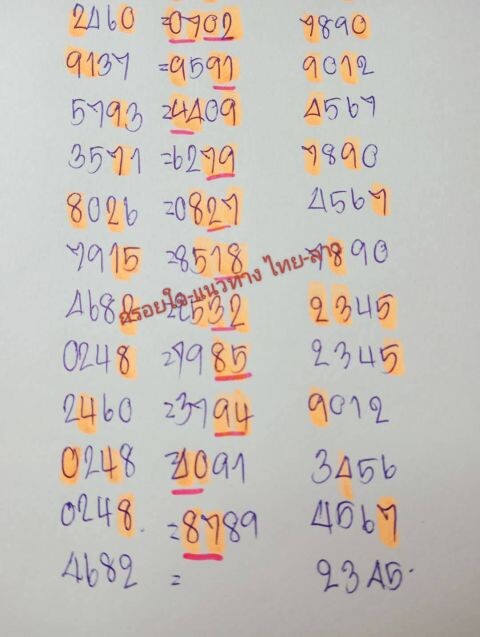 2460 =0702 7890
9137 =9591 9012
5793 =4409 4567
3571 =6279 7890
8026 =0827 4567
7915 =8518 7890
สร้อยใต้-แนวทาง ไทย-ลาว
468 532 2345
0248 =7985 2345
2460 =3794 9012
0248 =4091 3456
0248. =8789 4567
4682 = 2345.